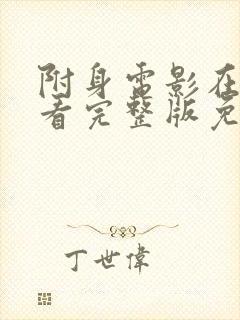 附身电影在
看完整版免
丁世偉